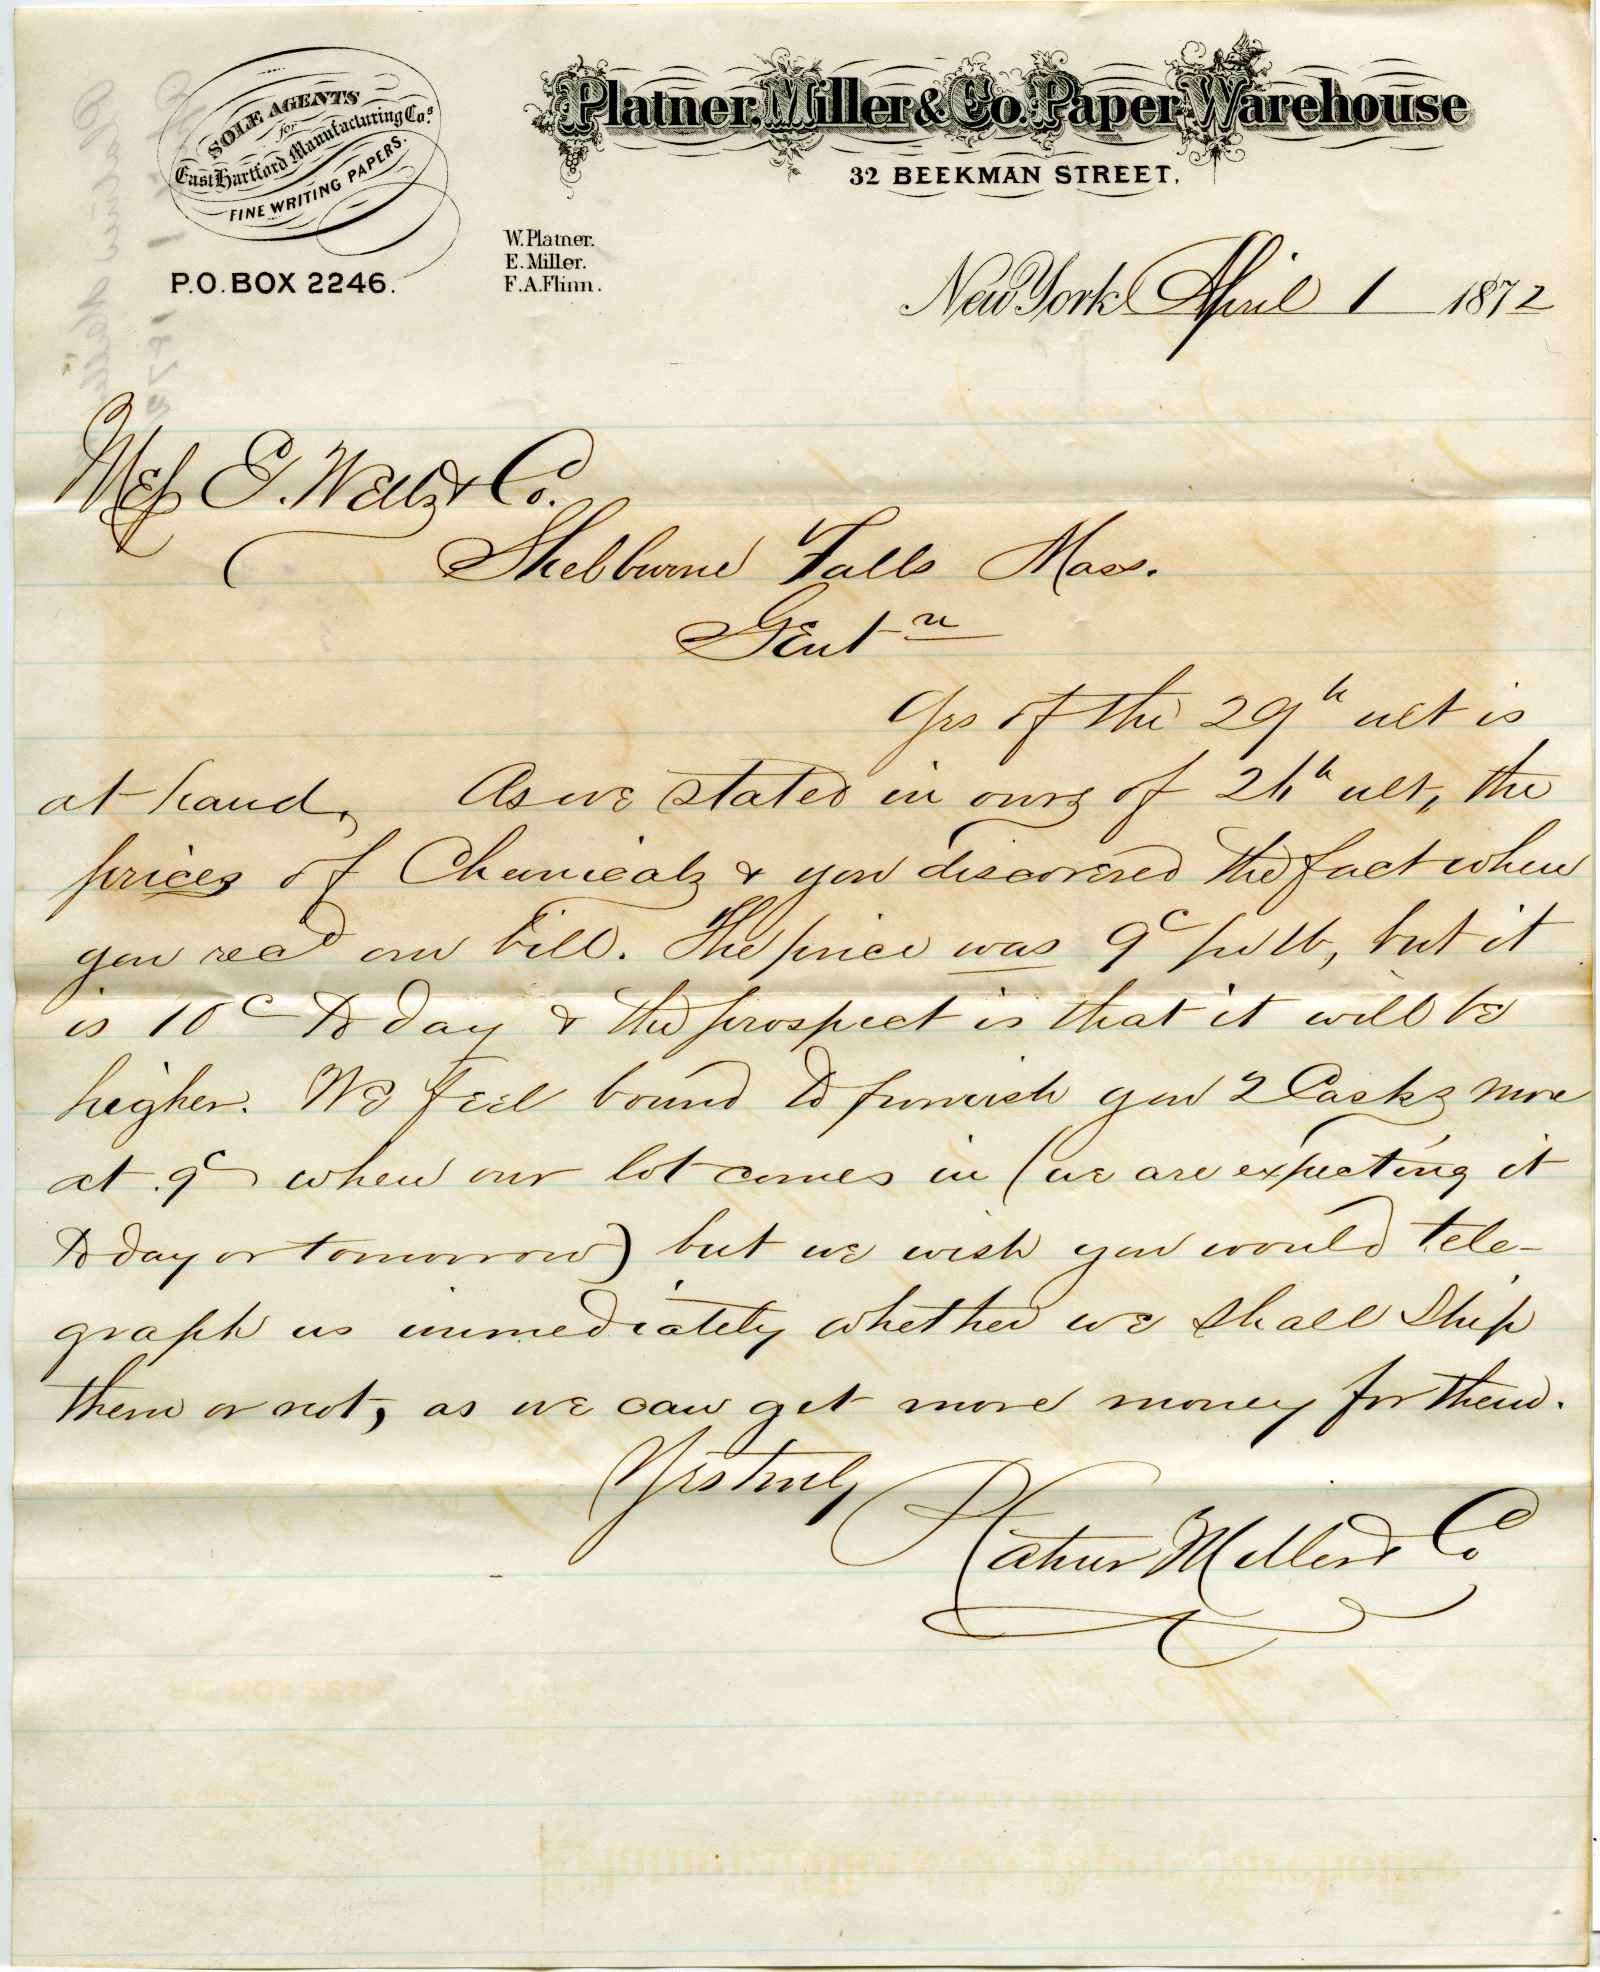 SOLE AGENTS
for
East Hartford Manufacturing Co.s
FINE WRITING PAPERS.
P.O. BOX 2246.
Platner, Miller & Co. Paper Warehouse
32 BEEKMAN STREET,
W. Platner.
E. Miller.
F. A. Flinn.
New York April 1 1872
Mess E. Wells & Co.
Shelburne Falls Mass.
Gentn
Yrs of the 29h ult is
at hand. As we stated in ours of ult, the
prices of Chemicals & you discovered the fact when
you recd our bill. The price was 9c per lb, but it
is 10c to day & the prospect is that it will be
higher. We feel bound to furnish you 2 Casks more
at 9c when our lot comes in (we are expecting it
to day or tomorrow) but we wish you would tele-
graph us immediately whether we shall ship
them or not, as we can get more money for them.
Yrs truly
Platner Miller & Co